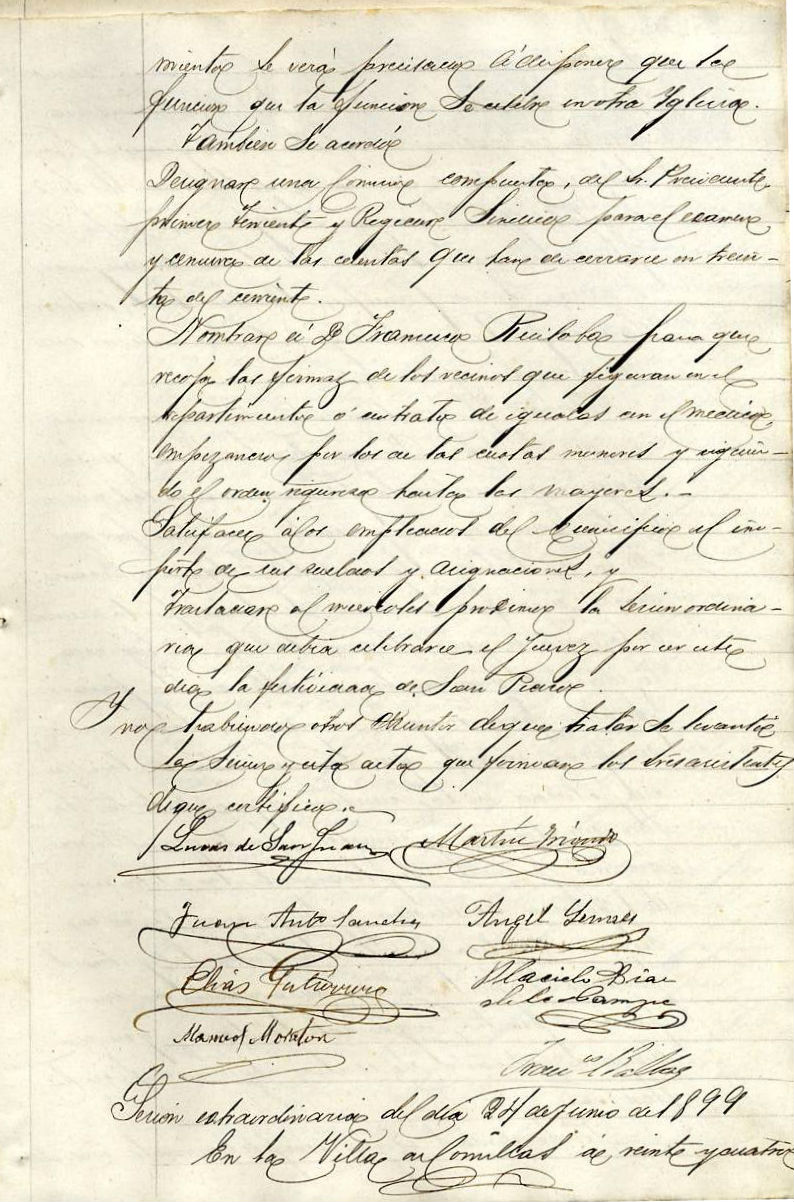 mientos se verá precisado á disponer que la
funcion que la funcion se celebre en otra Yglesia.
Tambien se acordó
Designar una Comision compuesta, del Sr. Presidente,
primer teniente y Regidor Sindico para el examen
y censura de las cuentas que han de cerrarse en trein-
ta del corriente.
Nombrar á Dn Francisco para que
recoja las firmas de los vecinos que figuran en el
repartimiento ó contrato de igualas con el medico,
empezando por los de las cuotas menores y siguien-
do el orden riguroso hasta las mayores. -
Satisfacer á los empleados del Municipio el im-
porte de sus sueldos y asignaciones, y
trasladar al miercoles proximo la sesion ordina-
ria que debia celebrarse el Juevez por ser este
dia la festividad de San Pedro.
Y no habiendo otros asuntos de que tratar se levantó
la Sesion y esta acta que firman los Sres asistentes
de que certifico.
Lucas de San Juan Martin
Juan Anto Sanchez Angel
Elias Gutierrez Placido Diaz
de la Campa
Manuel Moraton
Franco
Sesion extraordinaria del dia 24 de Junio de 1899
En la Villa de Comillas á veinte y cuatro